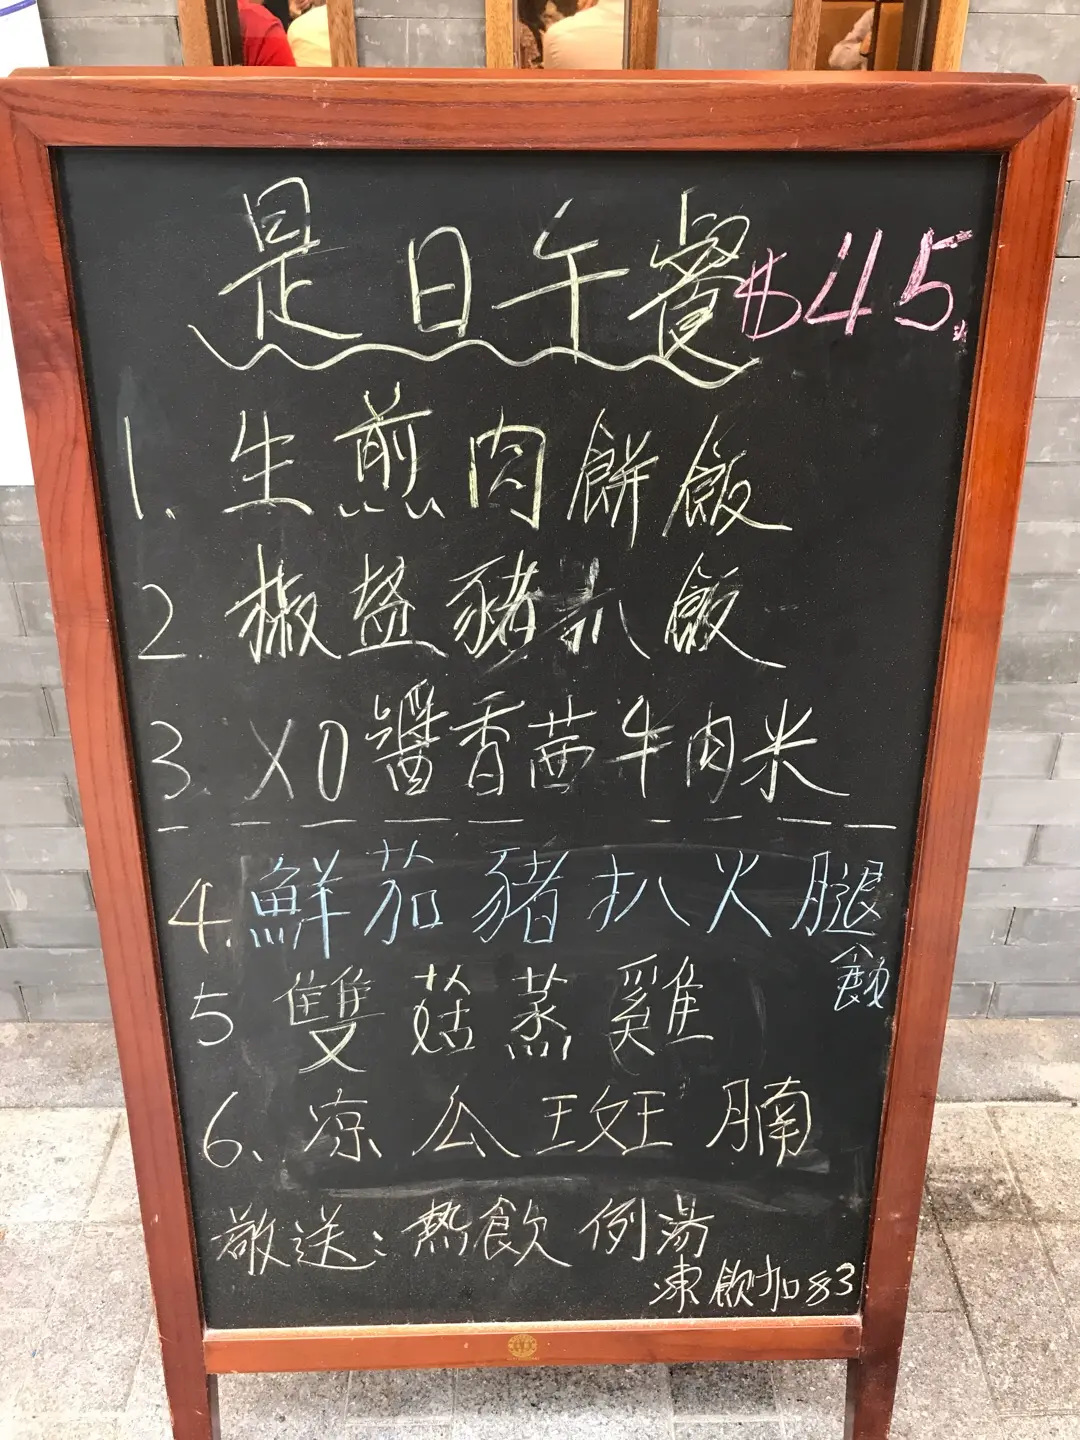 是日午餐 $45.
1. 生煎肉餅飯
2. 椒盐豬扒飯
3. XO醬香茜牛肉米
4. 鮮茄豬扒火腿
飯
5 雙菇蒸雞
6. 凉公斑腩
敬送：熱飲 例湯
凍飲加$3